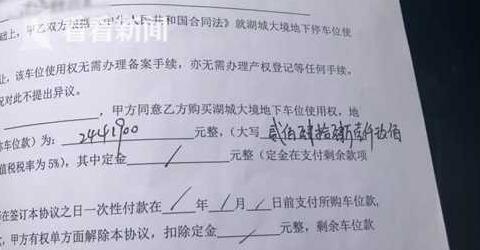 看看新闻
础上,甲乙双方 人民共和国合同法》就湖城大境地下停车位使
让,该车位使用权无需办理备案手续,亦无需办理产权登记等任何手续。
况对此不提出异议。
,甲方同意乙方购买湖城大境地下车位使用权,地
车位款)为: 2441900 元整,(大写 贰佰肆拾肆万壹仟玖佰
值税税率为5%),其中定金 / 元整(定金在支付剩余款项
在签订本协议之日一次性付款在 / 年 / 月 / 日前支付所购车位款,
,甲方有权单方面解除本协议,扣除定金 / 元整,剩余车位款